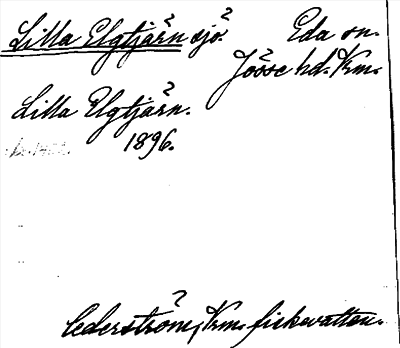 Lilla Elgtjärn sjö. Eda sn.
Jösse hd. Vrm.
Lilla Elgtjärn.
1896.
Cederström, Vrm. fiskevatten.